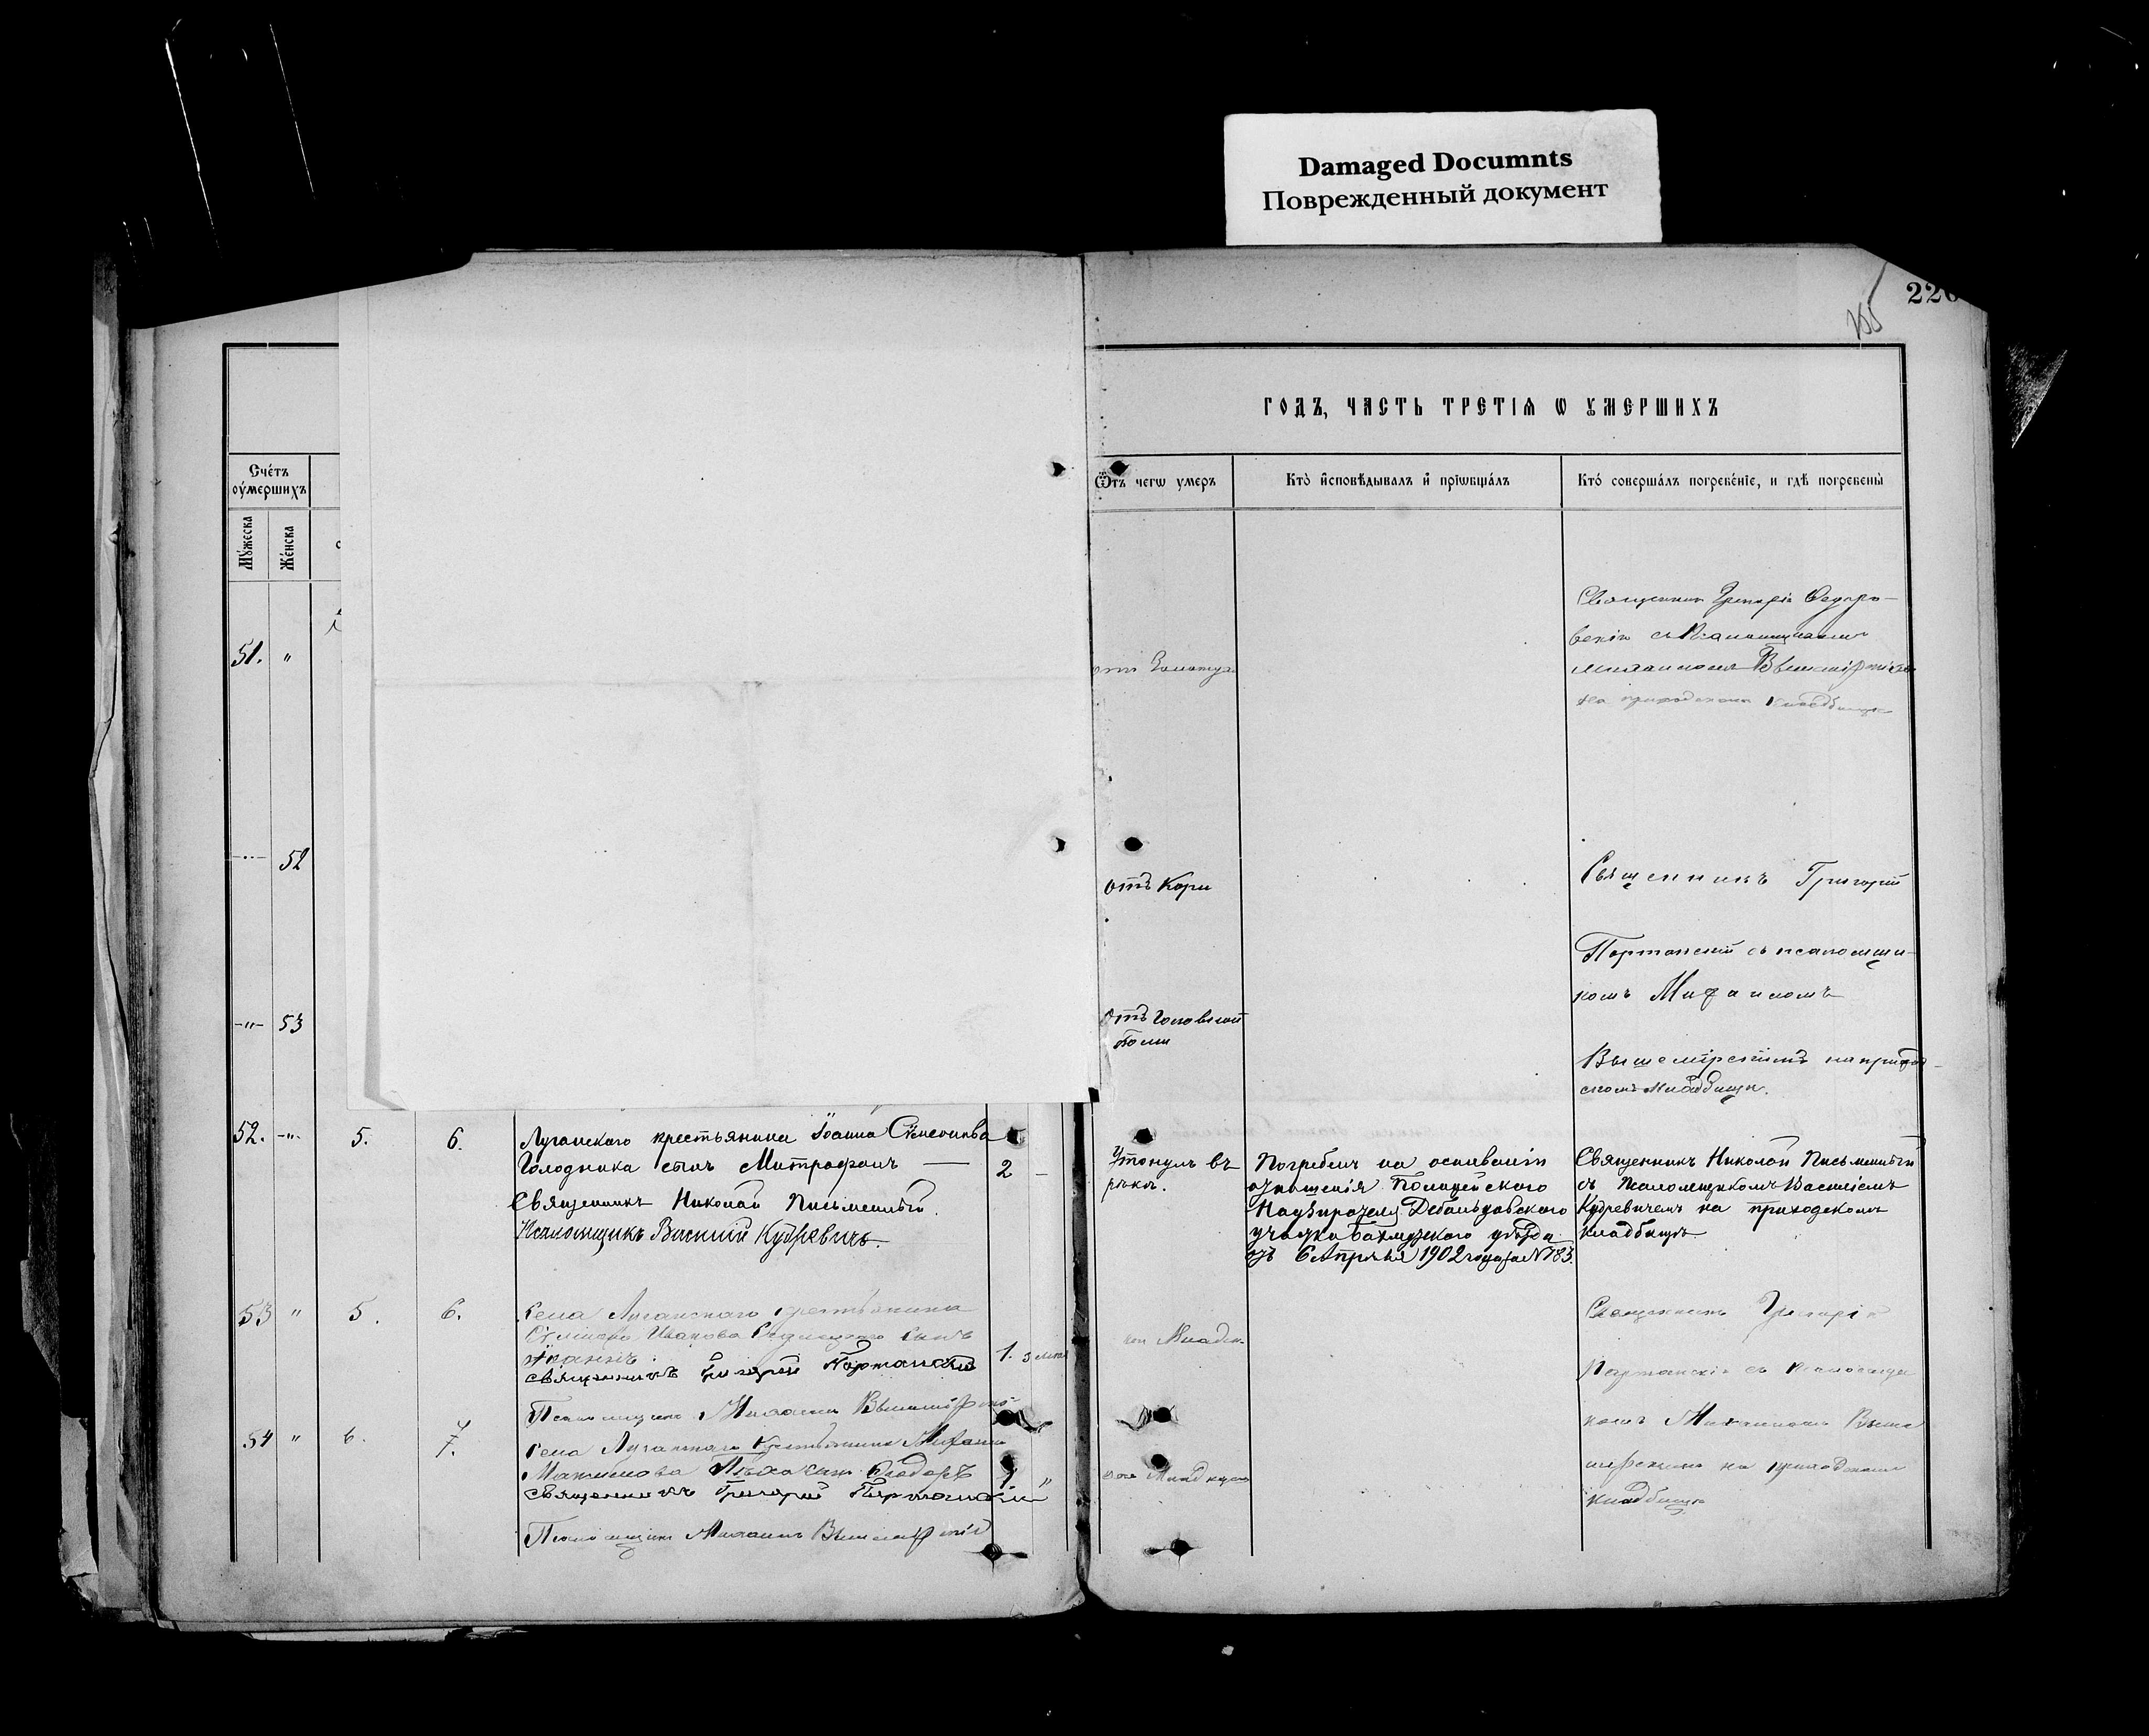 Damaged Documnts
Поврежденный документ
226
ГОДЪ, ЧАСТЬ ТРЕТІѦ Ѡ ОУМЕРШИХЪ
Счетъ
оумершихъ
Мужеска
Женска
Ѿтъ чегѡ умеръ
Кто исповѣдывалъ и пріѡбщалъ
Кто совершалъ погребеніе, и гдѣ погребены
51. "
52
Отъ Кори
Священникъ Григорій
Портанскій съ псаломщи-
комъ Михаиломъ
53
Отъ Головной
боли
Вышемірскимъ на приход-
скомъ кладбищѣ.
52. -"- 5. 6.
Луганскаго крестьянина Іоанна Семенова
Голодника сынъ Митрофанъ — 2 —
Священникъ Николай Письменный.
Псаломщикъ Василій Кудревичъ.
Утонулъ въ
рѣкѣ.
Погребенъ на основаніи
отношенія Полицейскаго
Надзирателя Дебальцовскаго
участка Бахмутскаго уѣзда
отъ 6 Апрѣля 1902 года за №183.
Священникъ Николай Письменный
съ Псаломщикомъ Василіемъ
Кудревичемъ на приходскомъ
кладбищѣ
53 " 5. 6.
Села Луганскаго крестьянина
Иванова сынъ
Іоаннъ 1.
священникъ Григорій Портанскій
Псаломщикъ Михаилъ Вышемірскій
Священникъ Григорій
Портанскій съ псаломщи
комъ Михаиломъ Выше
мірскимъ на приходскомъ
кладбищѣ
54 " 6. 7.
Села Луганскаго крестьянина
сынъ Ѳеодоръ 1 "
священникъ Григорій Портанскій
Псаломщикъ Михаилъ Вышемірскій